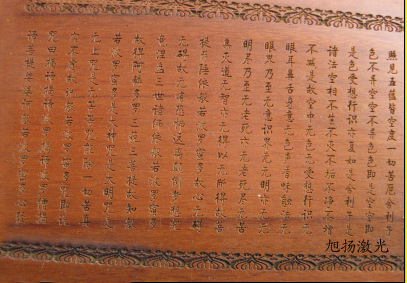 照見五蘊皆空度一切苦厄舍利子
色不異空空不異色色即是空空即
是色受想行識亦復如是舍利子是
諸法空相不生不滅不垢不淨不增
不減是故空中无色无受想行識无
眼耳鼻舌身意无色声香味觸法无
眼界乃至无意識界无无明亦无无
明尽乃至无老死亦无老死尽无苦
集滅道无智亦无得以无所得故菩
提薩埵依般若波羅蜜多故心无罣
礙无罣礙故无有恐怖遠離顛倒夢想究
竟涅槃三世諸佛依般若波羅蜜多
故得阿耨多羅三藐三菩提故知般
若波羅蜜多是大神咒是大明咒是
无上咒是无等等咒能除一切苦真
实不虚故說般若波羅蜜多咒即說
咒曰揭諦揭諦波羅揭諦波羅僧揭
諦菩提薩婆訶般若波羅蜜多心經
旭扬激光